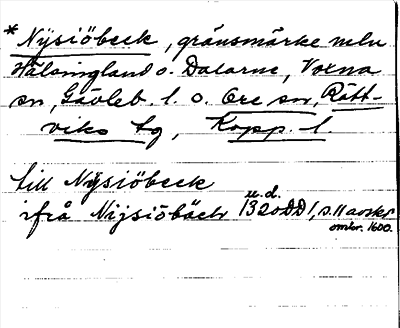 * Nysiöbeck, gränsmärke mln
Hälsingland o. Dalarne, Voxna
sn, Gävleb. l. o. Ore sn, Rätt-
viks tg, Kopp. l.
till Nÿsiöbeck
ifrå Nijsiöbäck u.d. 1320 DD1, s. 11 avskr
omkr. 1600.